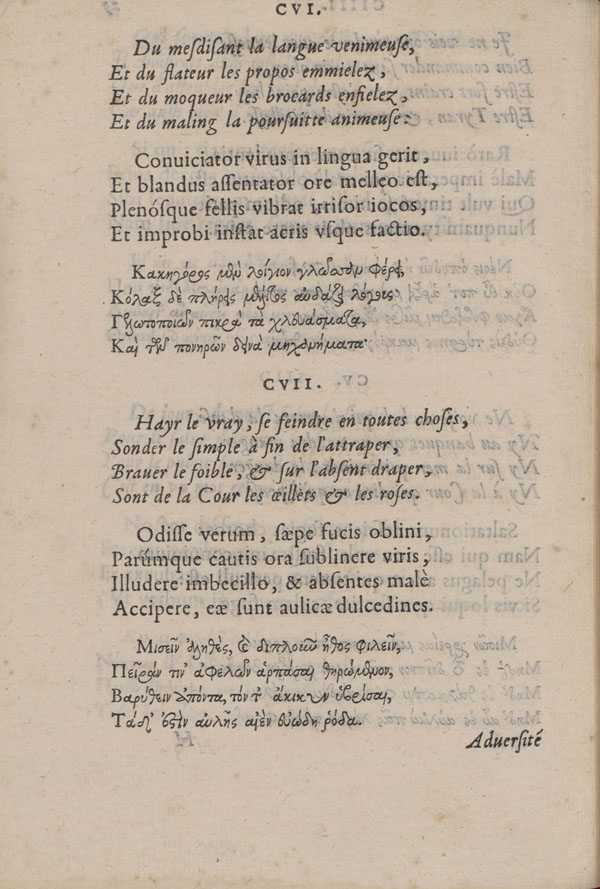 CVI.
Du mesdisant la langue venimeuse,
Et du flateur les propos emmielez,
Et du moqueur les brocards enfielez,
Et du maling la poursuitte animeuse:
Conuiciator virus in lingua gerit,
Et blandus assentator ore melleo est,
Plenósque fellis vibrat irrisor iocos,
Et improbi instat acris vsque factio.
Κακηγόρος μὲν λοίγιον γλῶσσαν φέρει,
Κόλαξ δὲ πλήρεις μέλιτος αὐδάζει λόγους·
Γελωτοποιῶν πικρὰ τὰ χλευάσματα,
Καὶ τῶν πονηρῶν δεινὰ μηχανήματα·
CVII.
Hayr le vray, se feindre en toutes choses,
Sonder le simple à fin de l'attraper,
Brauer le foible, & sur l'absent draper,
Sont de la Cour les œillets & les roses.
Odisse verum, sæpe fucis oblini,
Parúmque cautis ora sublinere viris,
Illudere imbecillo, & absentes malè
Accipere, eæ sunt aulicæ dulcedines.
Μισεῖν ἀληθὲς, διπλοῦν ἦθος φιλεῖν,
Πειρᾶν τιν' ἀφελῶν ἁρπάσαι θηρώμενον,
Βαρύθειν ἀπόντα, τόν τ' ὑβρίσαι,
Τάδ' ἐστὶν αὐλῆς αἰὲν εὐώδη ῥόδα.
Aduersité